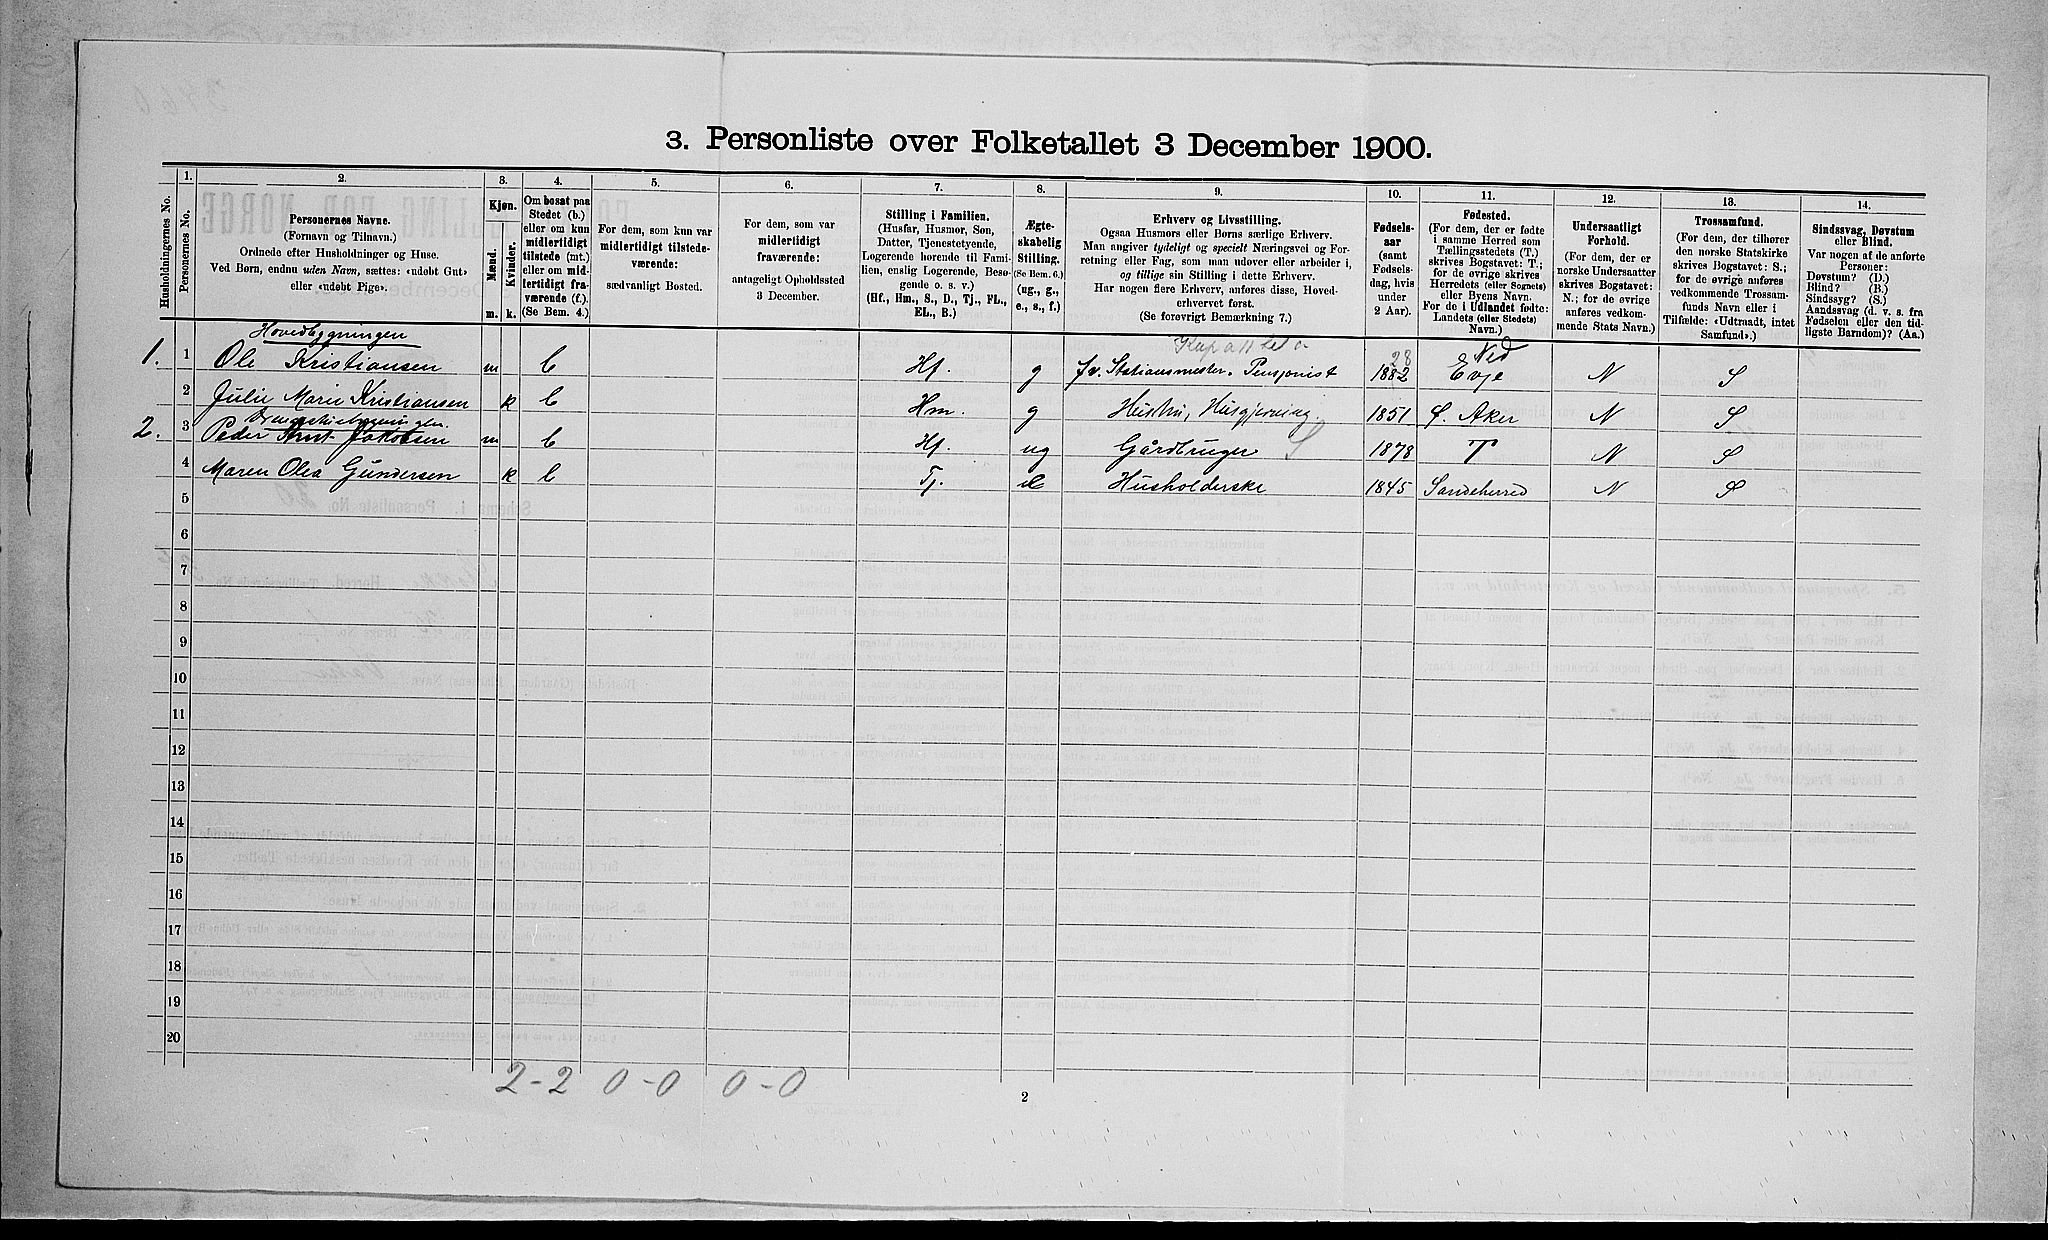 3. Personliste over Folketallet 3 December 1900.
Husholdningernes No.
1.
Personernes No.
2.
Personernes Navne.
(Fornavn og Tilnavn.)
Ordnede efter Husholdninger og Huse.
Ved Børn, endnu uden Navn, sættes: «udøbt Gut»
eller «udøbt Pige».
3.
Kjøn.
Mænd.
Kvinder.
m.
k.
4.
Om bosat paa
Stedet (b.)
eller om kun
midlertidigt
tilstede (mt.)
eller om mid-
lertidigt fra-
værende (f.).
(Se Bem. 4.)
5.
For dem, som kun var
midlertidigt tilstede-
værende:
sædvanligt Bosted.
6.
For dem, som var
midlertidigt
fraværende:
antageligt Opholdssted
3 December.
7.
Stilling i Familien.
(Husfar, Husmor, Søn,
Datter, Tjenestetyende,
Logerende hørende til Fami-
lien, enslig Logerende, Besø-
gende o. s. v.)
(Hf., Hm., S., D., Tj., FL.,
EL., B.)
8.
Ægte-
skabelig
Stilling.
(Se Bem. 6.)
(ug., g.,
e., s., f.)
9.
Erhverv og Livsstilling.
Ogsaa Husmors eller Børns særlige Erhverv.
Man angiver tydeligt og specielt Næringsvei og For-
retning eller Fag, som man udøver eller arbeider i,
og tillige sin Stilling i dette Erhverv.
Har nogen flere Erhverv, anføres disse, Hoved-
erhvervet først.
(Se forøvrigt Bemærkning 7.)
10.
Fødsels-
aar
(samt
Fødsels-
dag, hvis
under
2 Aar).
11.
Fødested.
(For dem, der er fødte
i samme Herred som
Tællingsstedets (T.)
skrives Bogstavet: T.;
for de øvrige skrives
Herredets (eller Sognets)
eller Byens Navn.
For de i Udlandet fødte:
Landets (eller Stedets)
Navn.)
12.
Undersaatligt
Forhold.
(For dem, der er
norske Undersaatter
skrives Bogstavet:
N.; for de øvrige
anføres vedkom-
mende Stats Navn.)
13.
Trossamfund.
(For dem, der tilhører
den norske Statskirke
skrives Bogstavet: S.;
for de øvrige anføres
vedkommende Trossam-
funds Navn eller i
Tilfælde: «Udtraadt, intet
Samfund».)
14.
Sindssvag, Døvstum
eller Blind.
Var nogen af de anførte
Personer:
Døvstum? (D.)
Blind? (B.)
Sindssyg? (S.)
Aandssvag (d. v. s. fra
Fødselen eller den tid-
ligste Barndom)? (Aa.)
Hovedbygningen
1. 1 Ole Kristiansen m b Hf. g fv. Stationsmester. Pensjonist 1882 28 Evje Ned N S
2 Julie Marie Kristiansen k b Hm. g Hustru, Husgjerning. 1851 S. Aker N S
2. 3 Peder Jakobsen m b Hf. ug Gårdbruger S 1878 T N S
4 Maren Olea Gundersen k b Tj. e Husholderske 1845 Sandeherred N S
5
6
7
8
9
10
11
12
13
14
15
16
17
18
19
20
2 - 2 0 - 0 0 - 0
2